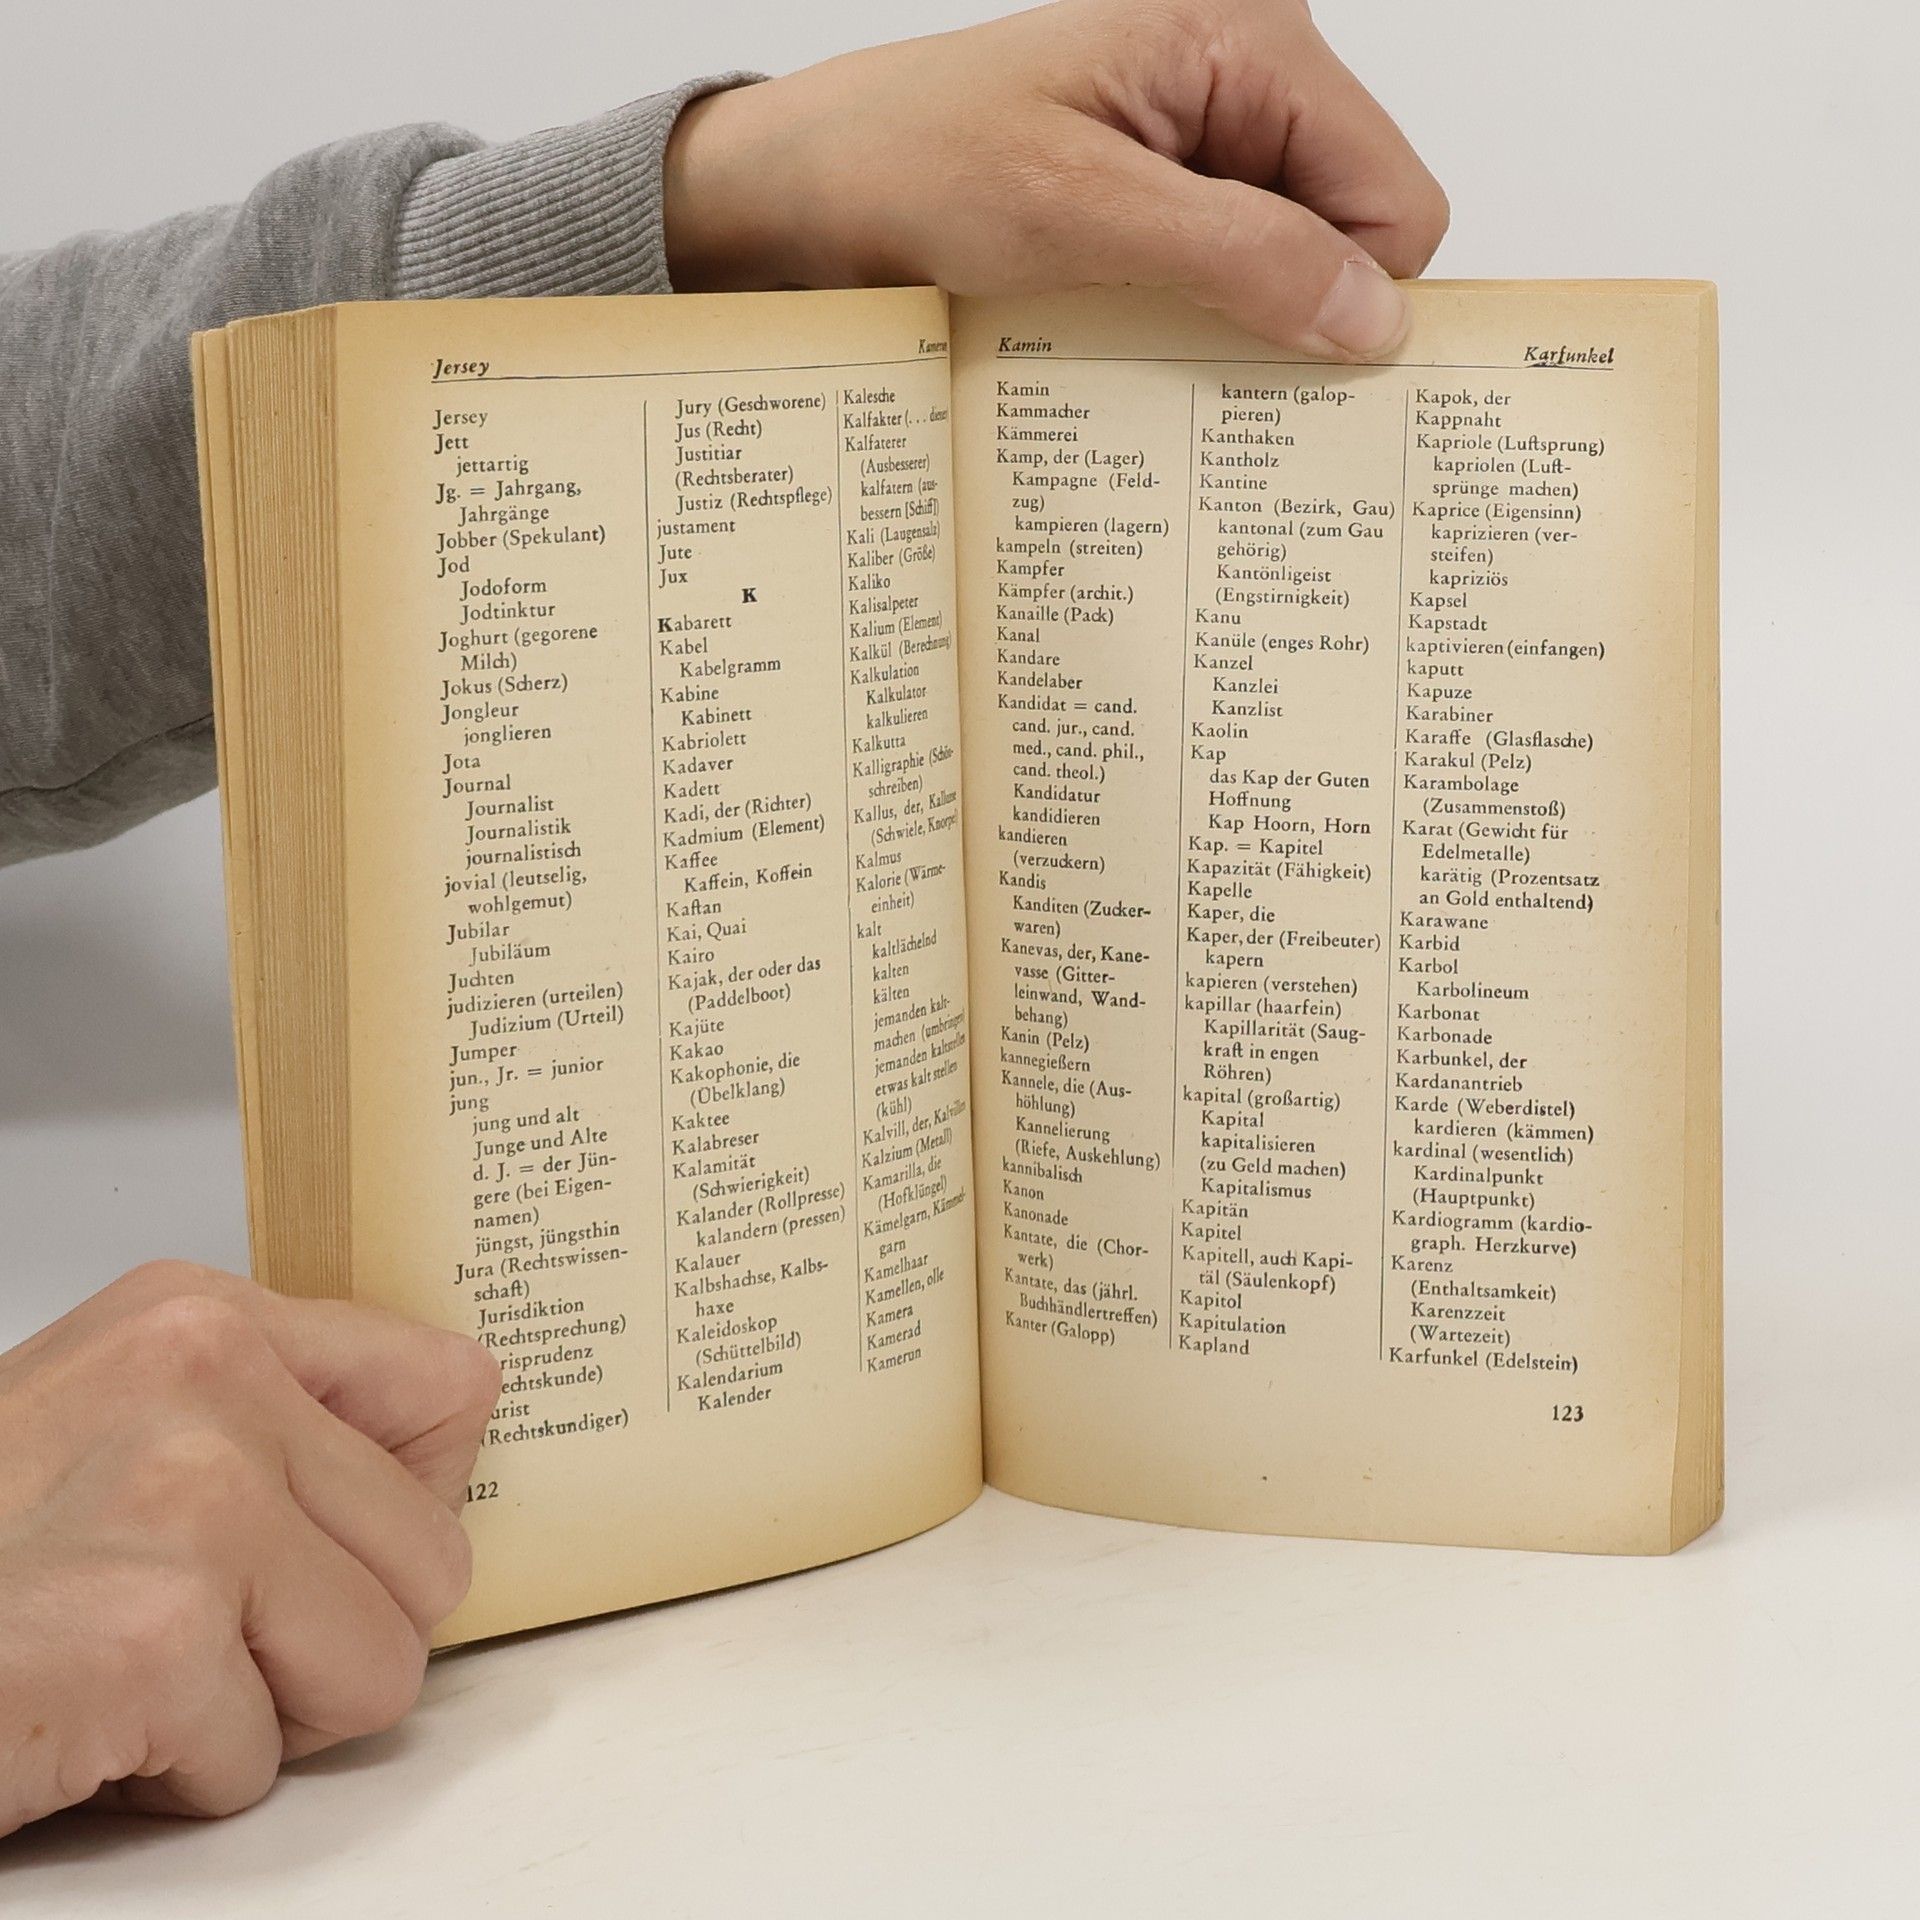 Jersey
Kamerun
Jersey
Jett
jettartig
Jg. = Jahrgang,
Jahrgänge
Jobber (Spekulant)
Jod
Jodoform
Jodtinktur
Joghurt (gegorene
Milch)
Jokus (Scherz)
Jongleur
jonglieren
Jota
Journal
Journalist
Journalistik
journalistisch
jovial (leutselig,
wohlgemut)
Jubilar
Jubiläum
Juchten
judizieren (urteilen)
Judizium (Urteil)
Jumper
jun., Jr. = junior
jung
jung und alt
Junge und Alte
d. J. = der Jün-
gere (bei Eigen-
namen)
jüngst, jüngsthin
Jura (Rechtswissen-
schaft)
Jurisdiktion
(Rechtsprechung)
risprudenz
echtskunde)
urist
(Rechtskundiger)
Jury (Geschworene)
Jus (Recht)
Justitiar
(Rechtsberater)
Justiz (Rechtspflege)
justament
Jute
Jux
K
Kabarett
Kabel
Kabelgramm
Kabine
Kabinett
Kabriolett
Kadaver
Kadett
Kadi, der (Richter)
Kadmium (Element)
Kaffee
Kaffein, Koffein
Kaftan
Kai, Quai
Kairo
Kajak, der oder das
(Paddelboot)
Kajüte
Kakao
Kakophonie, die
(Übelklang)
Kaktee
Kalabreser
Kalamität
(Schwierigkeit)
Kalander (Rollpresse)
kalandern (pressen)
Kalauer
Kalbshachse, Kalbs-
haxe
Kaleidoskop
(Schüttelbild)
Kalendarium
Kalender
Kalesche
Kalfakter (. . .
Kalfaterer
(Ausbesserer)
kalfatern (aus-
bessern [Schiff])
Kali (Laugensalz)
Kaliber (Größe)
Kaliko
Kalisalpeter
Kalium (Element)
Kalkül (Berechnung)
Kalkulation
Kalkulator
kalkulieren
Kalkutta
Kalligraphie (Schön-
schreiben)
Kallus, der, Kallusse
(Schwiele, Knorpel)
Kalmus
Kalorie (Wärme-
einheit)
kalt
kaltlächelnd
kalten
kälten
jemanden kalt-
machen (umbringen)
jemanden kaltstellen
etwas kalt stellen
(kühl)
Kalvill, der, Kalvillen
Kalzium (Metall)
Kamarilla, die
(Hofklüngel)
Kämelgarn, Kämmel-
garn
Kamelhaar
Kamellen, olle
Kamera
Kamerad
Kamerun
122
Kamin
Karfunkel
Kamin
Kammacher
Kämmerei
Kamp, der (Lager)
Kampagne (Feld-
zug)
kampieren (lagern)
kampeln (streiten)
Kampfer
Kämpfer (archit.)
Kanaille (Pack)
Kanal
Kandare
Kandelaber
Kandidat = cand.
cand. jur., cand.
med., cand. phil.,
cand. theol.)
Kandidatur
kandidieren
kandieren
(verzuckern)
Kandis
Kanditen (Zucker-
waren)
Kanevas, der, Kane-
vasse (Gitter-
leinwand, Wand-
behang)
Kanin (Pelz)
kannegießern
Kannele, die (Aus-
höhlung)
Kannelierung
(Riefe, Auskehlung)
kannibalisch
Kanon
Kanonade
Kantate, die (Chor-
werk)
Kantate, das (jährl.
Buchhändlertreffen)
Kanter (Galopp)
kantern (galop-
pieren)
Kanthaken
Kantholz
Kantine
Kanton (Bezirk, Gau)
kantonal (zum Gau
gehörig)
Kantönligeist
(Engstirnigkeit)
Kanu
Kanüle (enges Rohr)
Kanzel
Kanzlei
Kanzlist
Kaolin
Kap
das Kap der Guten
Hoffnung
Kap Hoorn, Horn
Kap. = Kapitel
Kapazität (Fähigkeit)
Kapelle
Kaper, die
Kaper, der (Freibeuter)
kapern
kapieren (verstehen)
kapillar (haarfein)
Kapillarität (Saug-
kraft in engen
Röhren)
kapital (großartig)
Kapital
kapitalisieren
(zu Geld machen)
Kapitalismus
Kapitän
Kapitel
Kapitell, auch Kapi-
täl (Säulenkopf)
Kapitol
Kapitulation
Kapland
Kapok, der
Kappnaht
Kapriole (Luftsprung)
kapriolen (Luft-
sprünge machen)
Kaprice (Eigensinn)
kaprizieren (ver-
steifen)
kapriziös
Kapsel
Kapstadt
kaptivieren (einfangen)
kaputt
Kapuze
Karabiner
Karaffe (Glasflasche)
Karakul (Pelz)
Karambolage
(Zusammenstoß)
Karat (Gewicht für
Edelmetalle)
karätig (Prozentsatz
an Gold enthaltend)
Karawane
Karbid
Karbol
Karbolineum
Karbonat
Karbonade
Karbunkel, der
Kardanantrieb
Karde (Weberdistel)
kardieren (kämmen)
kardinal (wesentlich)
Kardinalpunkt
(Hauptpunkt)
Kardiogramm (kardio-
graph. Herzkurve)
Karenz
(Enthaltsamkeit)
Karenzzeit
(Wartezeit)
Karfunkel (Edelstein)
123